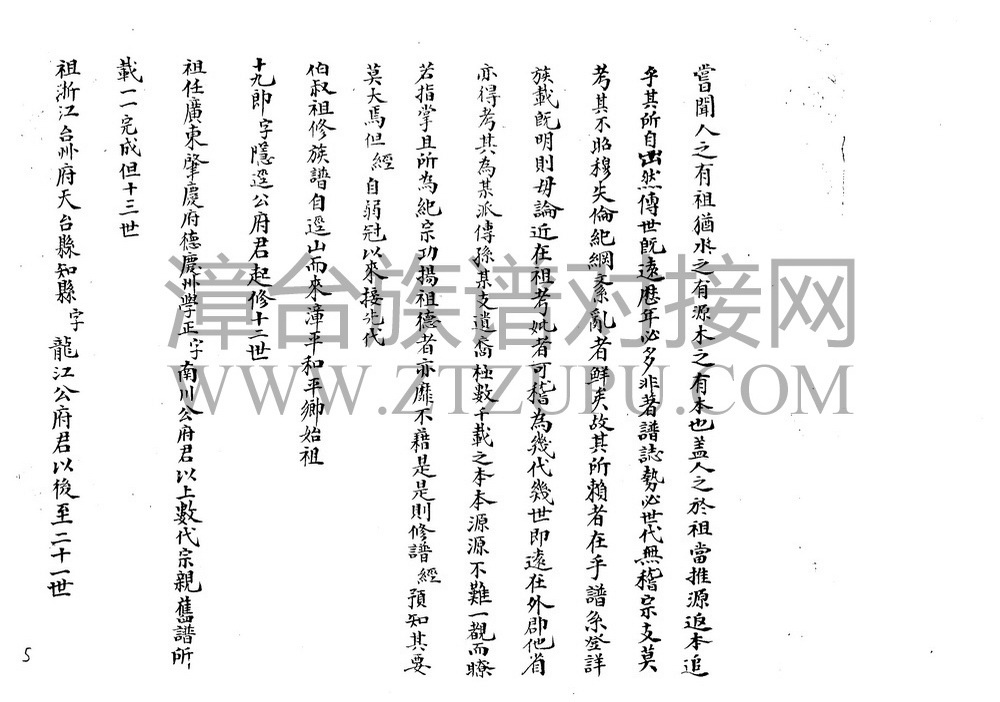 嘗聞人之有祖猶水之有源木之有本也盖人之於祖當推源返本追
乎其所自出然傳世既遠歷年必多非著譜誌勢必世代無稽宗支莫
考其不昭穆失倫紀綱紊亂者鮮矣故其所賴者在乎譜系登詳
族載既明則毋論近在祖考妣者可稽為幾代幾世即遠在外郡他省
亦得考其為某派傳孫某支遺裔極數千載之本本源源不難一覩而瞭
若指掌且所為紀宗功揚祖德者亦靡不藉是是則修譜 經 預知其要
莫大焉但 經 自弱冠以來接先代
伯叔祖修族譜自逕山而來漳平和平鄉始祖
十九郎字隱逕公府君起修十二世
祖任廣東肇慶府德慶州學正字南川公府君以上數代宗親舊譜所
載一一完成但十三世
祖浙江台州府天台縣知縣字 龍江公府君以後至二十一世
5
漳台族谱对接网
WWW.ZTZUPU.COM